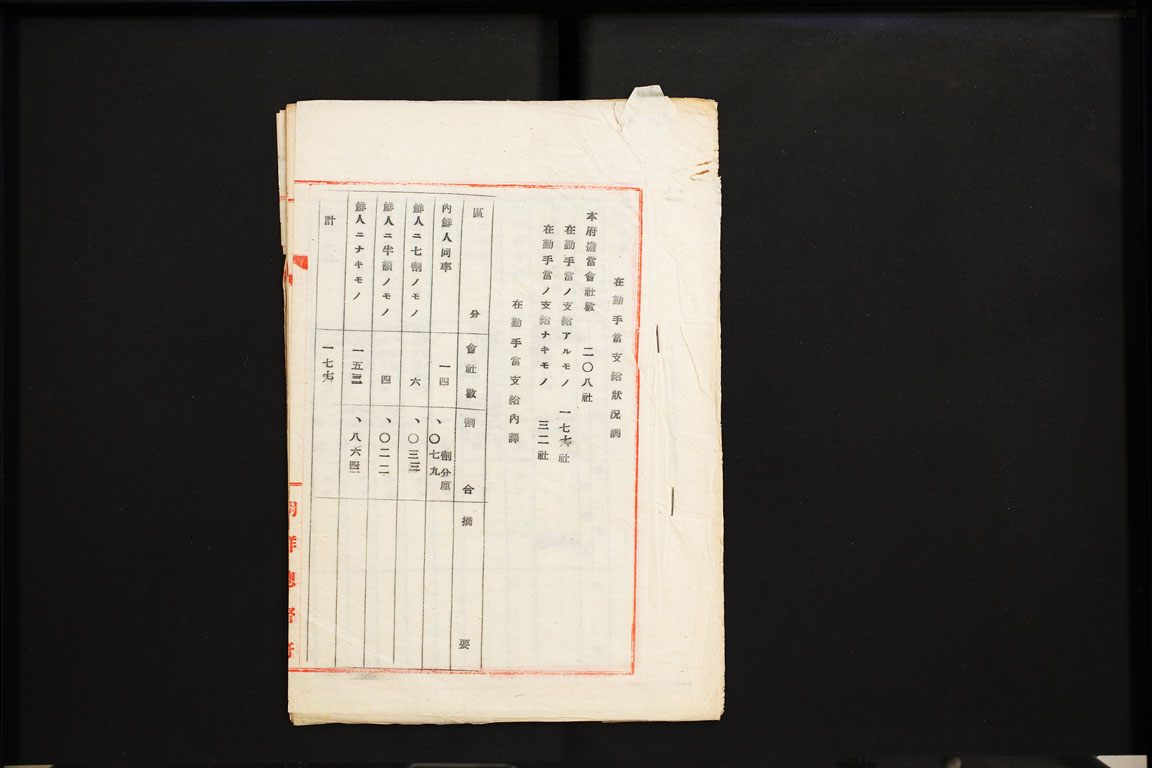 在勤手當支給狀況調
本府擔當會社數 二〇八社
在勤手當ノ支給アルモノ 一七六社
在勤手當ノ支給ナキモノ 三二社
在勤手當支給內譯
區分 會社數 割合 摘要
內鮮人同率 一四 割分厘 、〇七九
鮮人ニ七割ノモノ 六 、〇三三
鮮人ニ半額ノモノ 四 、〇二二
鮮人ニナキモノ 、八六四
計 一七六
朝鮮總督府